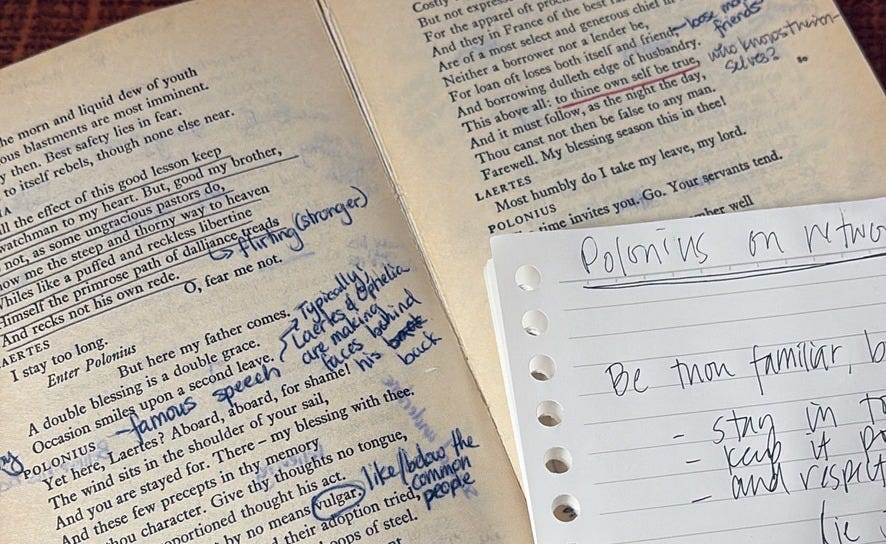 he morn and liquid dew of youth
ous blastments are most imminent.
y then. Best safety lies in fear.
to itself rebels, though none else near.
ll the effect of this good lesson keep
watchman to my heart. But, good my brother,
not, as some ungracious pastors do,
how me the steep and thorny way to heaven
Whiles like a puffed and reckless libertine
Himself the primrose path of dalliance treads
And recks not his own rede.
flirting (stronger)
O, fear me not.
LAERTES
I stay too long.
Enter Polonius
But here my father comes.
A double blessing is a double grace.
Occasion smiles upon a second leave.
Typically,
Laertes & Ophelia
are making
faces behind
his back
POLONIUS
famous speech
Yet here, Laertes? Aboard, aboard, for shame!
The wind sits in the shoulder of your sail,
And you are stayed for. There – my blessing with thee.
And these few precepts in thy memory
thou character. Give thy thoughts no tongue,
oportioned thought his act.
by no means vulgar.
like/below the
common
people
their adoption tried,
oops of steel.
Costly
But not express
For the apparel oft pro
And they in France of the best ra
Are of a most select and generous chief in
Neither a borrower nor a lender be,
For loan oft loses both itself and friend,
lose
friends
And borrowing dulleth edge of husbandry.
This above all: to thine own self be true,
who knows them-
selves?
80
And it must follow, as the night the day,
Thou canst not then be false to any man.
Farewell. My blessing season this in thee!
LAERTES
Most humbly do I take my leave, my lord.
POLONIUS
time invites you. Go. Your servants tend.
mber well
Polonius on netwo
Be thou familiar, b
- stay in to
- keep it pr
- and respect
(ie